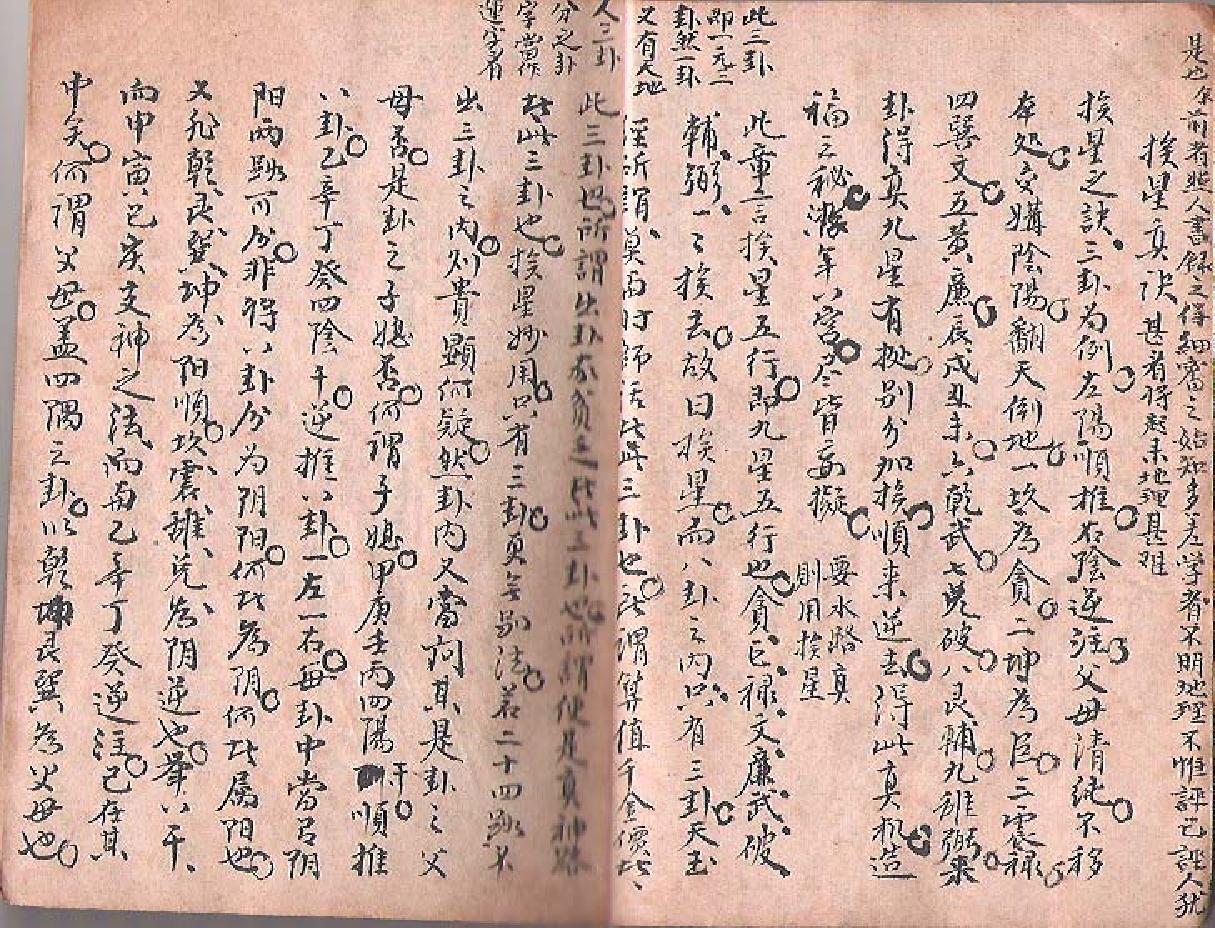 是也余前者照人書錄之得細審之始知多差學者不明地理不惟評己誤人犹
挨星真訣甚者得起未地理甚難
挨星之訣三卦為例左陽順推右陰逆註父母清純不移
本处交媾陰陽翻天倒地一坎為貪二坤為巨三震禄
四巽文五黄廉辰戌丑未六乾武七兑破八艮輔九離弼
卦得真九星有秘别分加挨順來逆去得此真机造
福之秘
要水路真
則用挨星
此章言挨星五行即九星五行也貪巨禄文廉武破
輔弼一一挨去故曰挨星而八卦之内只有三卦天玉
經所謂 此三卦也 千金價此
此三卦
即一元二
卦然一卦
又有天地
人三卦
分之卦
字當作
運字看
此三卦也所謂出卦家貧乏此三卦也所謂便是真神路
此三卦也挨星妙用只有三卦更無别法若二十四路不
出三卦之内則貴顯何疑然卦内又當問其是卦之父
母否是卦之子媳否何謂子媳甲庚壬丙四陽干順推
八卦乙辛丁癸四陰干逆推八卦一左一右每卦中當尋阴
阳兩路可分非将八卦分为阴阳何此為阴何此属阳也
又非乾艮巽坤為阳順坎震離兑為阴逆也舉八干
而甲寅巳亥支神之法而南乙辛丁癸逆註已在其
中矣何謂父母蓋四隅之卦以乾坤艮巽為父母也